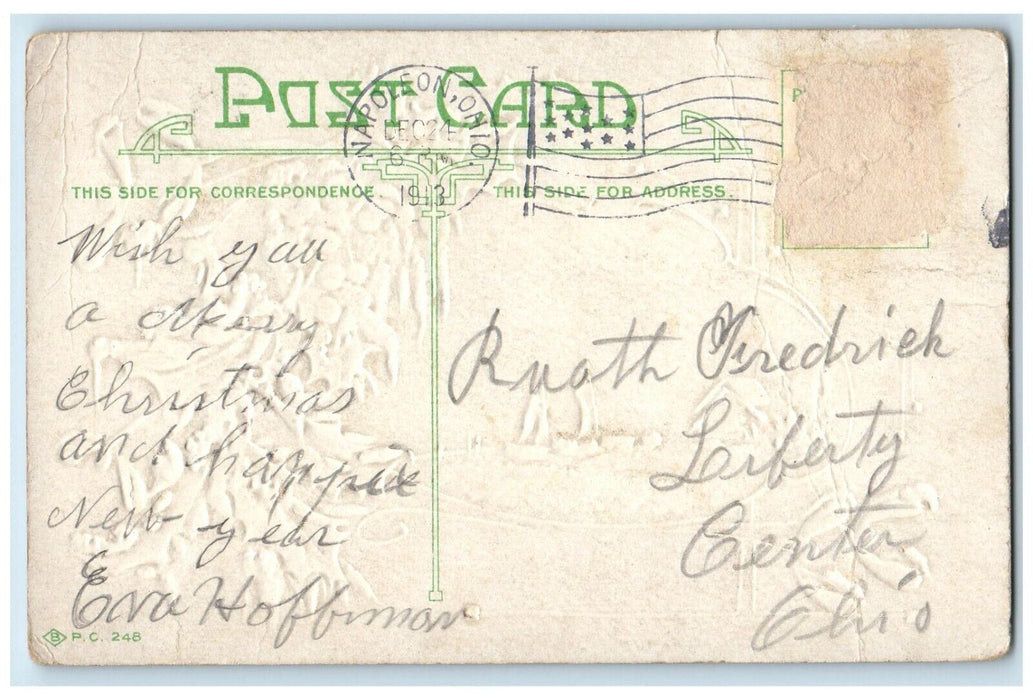 POST CARD
NAPOLEON, OHIO.
DEC 24
6
1913
P
THIS SIDE FOR CORRESPONDENCE
THIS SIDE FOR ADDRESS.
Wish you
a Merry
Christmas
and happie
New year
Eva Hoffman
Ruoth Fredrick
Liberty
Center
Ohio
B P.C. 248